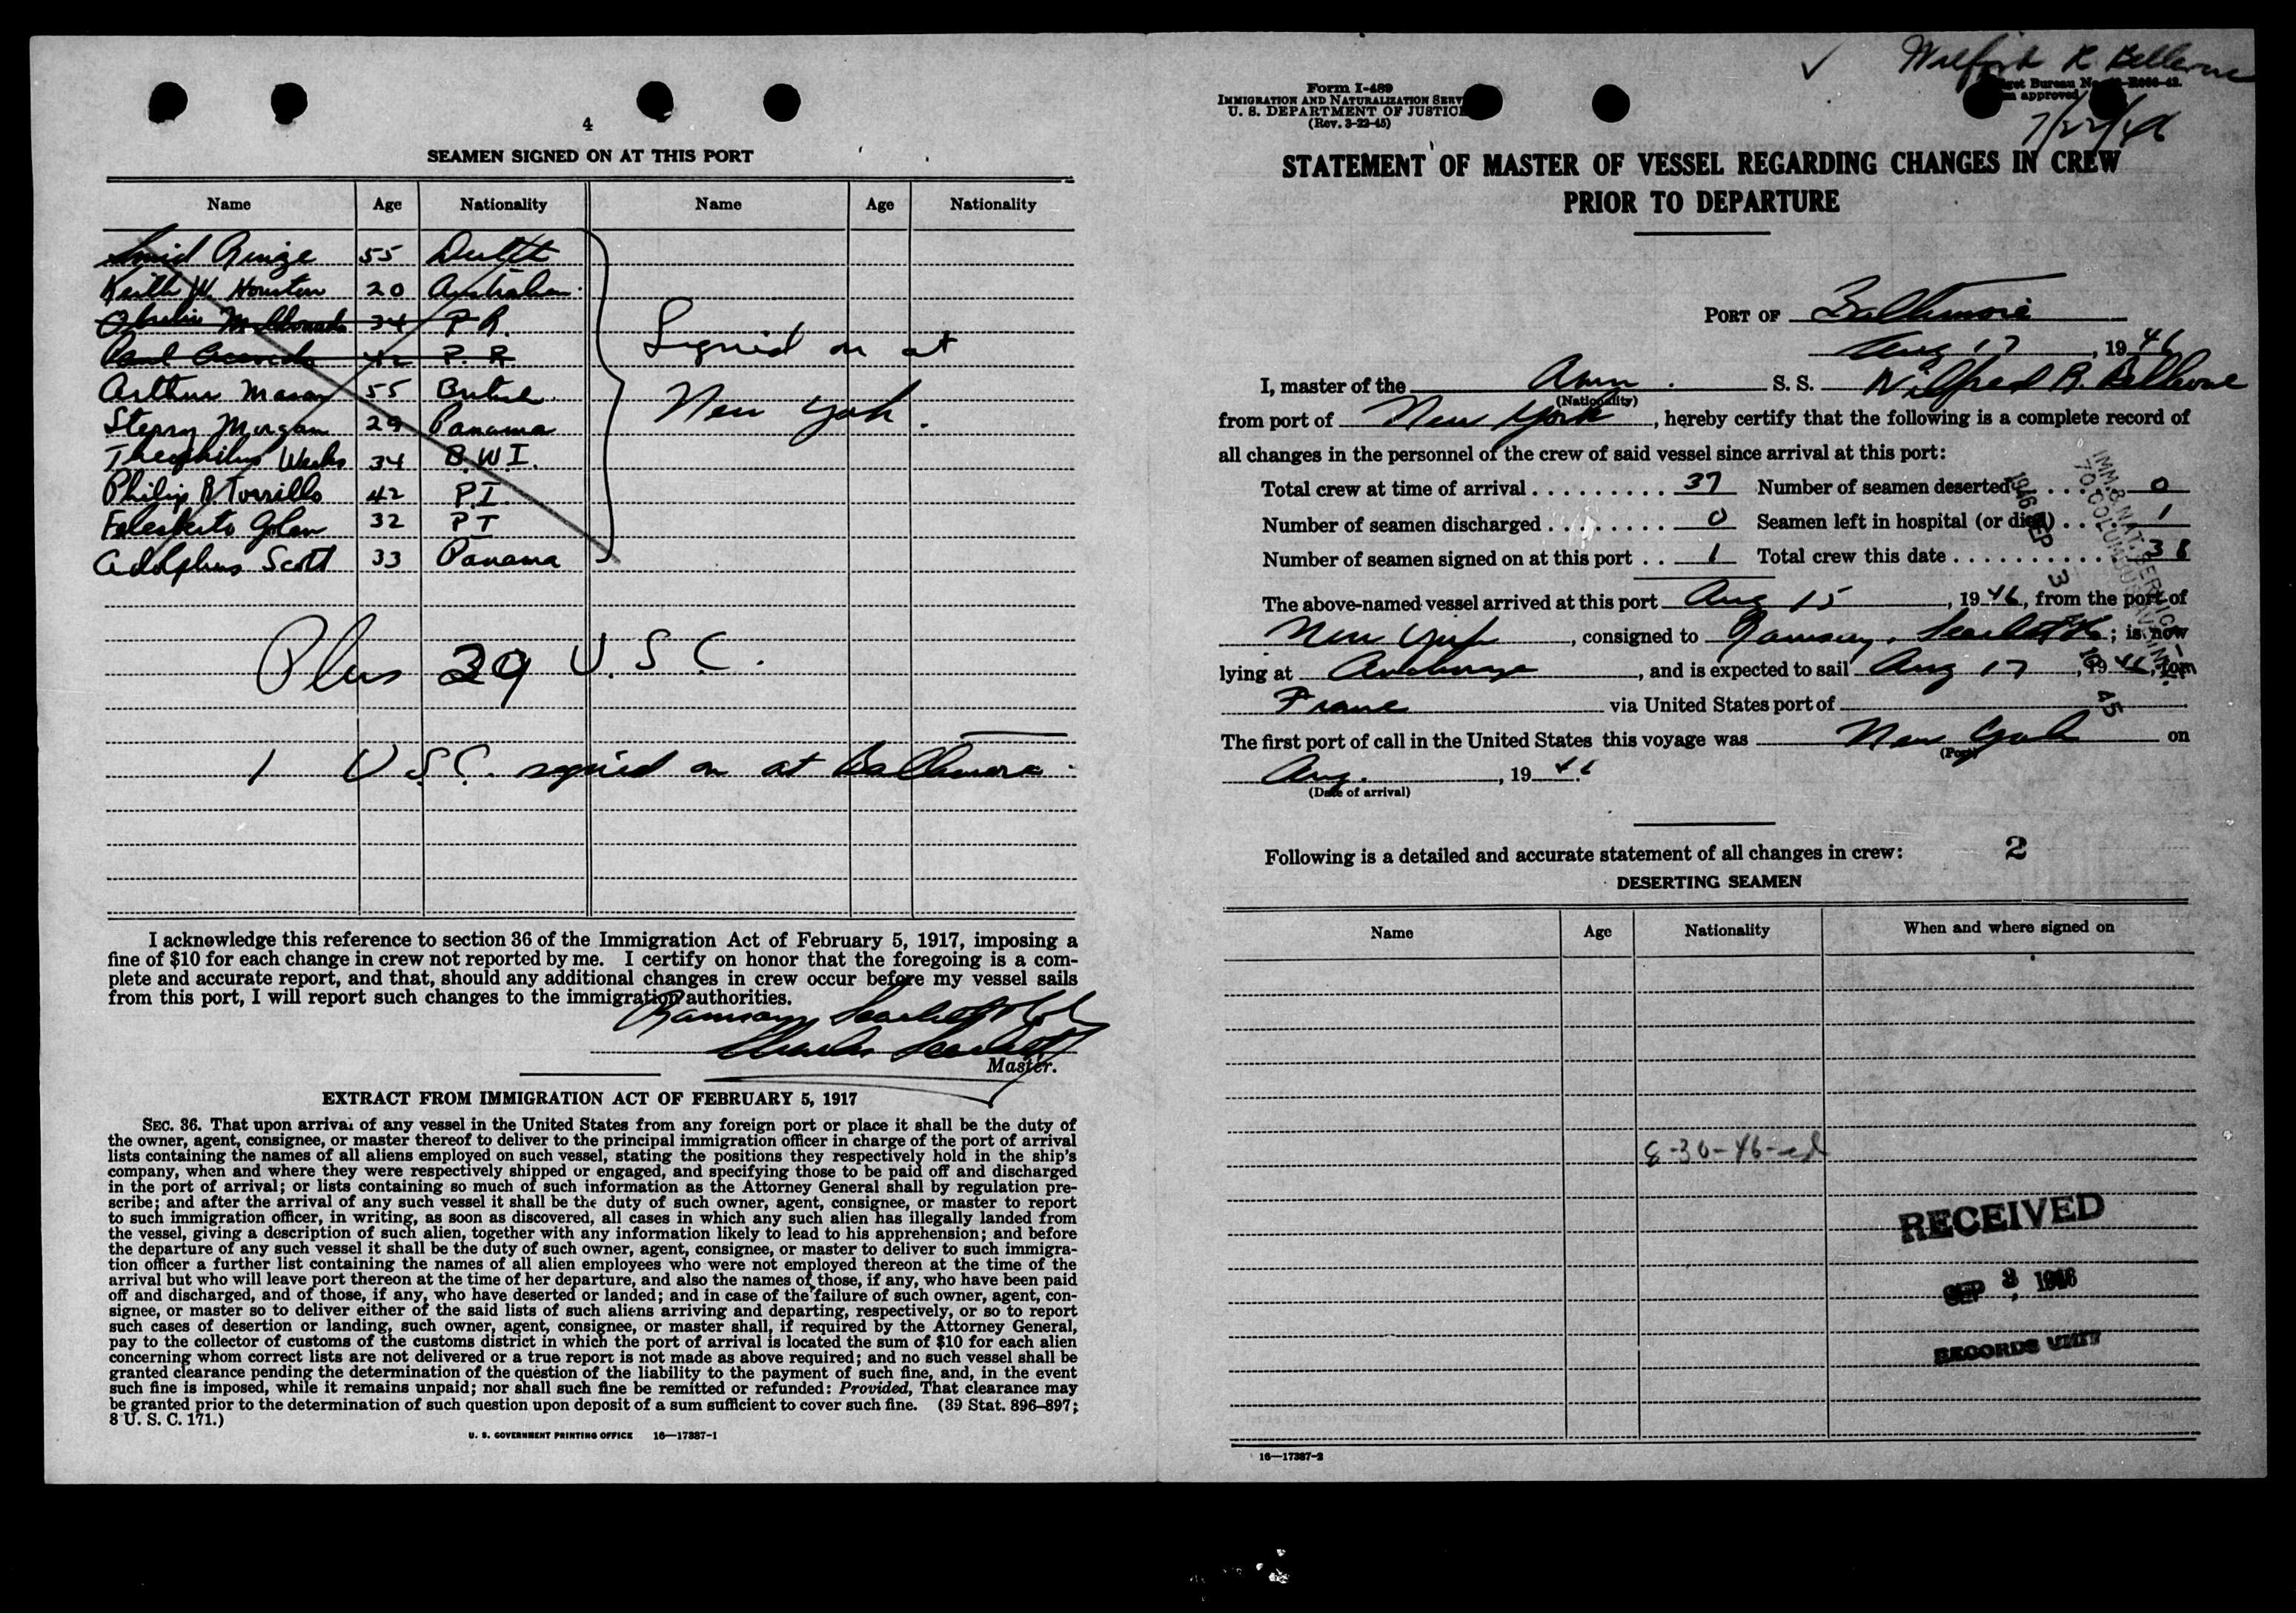 4
SEAMEN SIGNED ON AT THIS PORT
Name Age Nationality Name Age Nationality
Smid Rinze 55 Dutch
Keith W. Houston 20 Australian
34 P.R.
42 P.R.
Arthur Mason 55 British
Sterry Morgan 29 Panama
Theophilus Weeks 34 B.W.I.
Philip R Torrillo 42 P.I.
Golen 32 P.I.
Adolphus Scott 33 Panama
Signed on at
New York.
Plus 29 U.S.C.
1 U.S.C. signed on at Baltimore.
I acknowledge this reference to section 36 of the Immigration Act of February 5, 1917, imposing a
fine of $10 for each change in crew not reported by me. I certify on honor that the foregoing is a com-
plete and accurate report, and that, should any additional changes in crew occur before my vessel sails
from this port, I will report such changes to the immigration authorities.
Ramsay Scarlett & Co
Charles Scarlett
Master.
EXTRACT FROM IMMIGRATION ACT OF FEBRUARY 5, 1917
SEC. 36. That upon arrival of any vessel in the United States from any foreign port or place it shall be the duty of
the owner, agent, consignee, or master thereof to deliver to the principal immigration officer in charge of the port of arrival
lists containing the names of all aliens employed on such vessel, stating the positions they respectively hold in the ship's
company, when and where they were respectively shipped or engaged, and specifying those to be paid off and discharged
in the port of arrival; or lists containing so much of such information as the Attorney General shall by regulation pre-
scribe; and after the arrival of any such vessel it shall be the duty of such owner, agent, consignee, or master to report
to such immigration officer, in writing, as soon as discovered, all cases in which any such alien has illegally landed from
the vessel, giving a description of such alien, together with any information likely to lead to his apprehension; and before
the departure of any such vessel it shall be the duty of such owner, agent, consignee, or master to deliver to such immigra-
tion officer a further list containing the names of all alien employees who were not employed thereon at the time of the
arrival but who will leave port thereon at the time of her departure, and also the names of those, if any, who have been paid
off and discharged, and of those, if any, who have deserted or landed; and in case of the failure of such owner, agent, con-
signee, or master so to deliver either of the said lists of such aliens arriving and departing, respectively, or so to report
such cases of desertion or landing, such owner, agent, consignee, or master shall, if required by the Attorney General,
pay to the collector of customs of the customs district in which the port of arrival is located the sum of $10 for each alien
concerning whom correct lists are not delivered or a true report is not made as above required; and no such vessel shall be
granted clearance pending the determination of the question of the liability to the payment of such fine, and, in the event
such fine is imposed, while it remains unpaid; nor shall such fine be remitted or refunded: Provided, That clearance may
be granted prior to the determination of such question upon deposit of a sum sufficient to cover such fine. (39 Stat. 896–897;
8 U. S. C. 171.)
U. S. GOVERNMENT PRINTING OFFICE 16—17387-1
✓ Wilfred R. Bellevue
7/22/46
Form I-489
IMMIGRATION AND NATURALIZATION SERV
U. S. DEPARTMENT OF JUSTICE
(Rev. 3-22-45)
STATEMENT OF MASTER OF VESSEL REGARDING CHANGES IN CREW
PRIOR TO DEPARTURE
PORT OF Baltimore
Aug 17, 1946
I, master of the Amn. S. S. Wilfred R. Bellevue
(Nationality)
from port of New York, hereby certify that the following is a complete record of
all changes in the personnel of the crew of said vessel since arrival at this port:
Total crew at time of arrival 37 Number of seamen deserted 0
Number of seamen discharged 0 Seamen left in hospital (or died) 1
Number of seamen signed on at this port 1 Total crew this date 38
The above-named vessel arrived at this port Aug 15, 1946, from the port of
New York, consigned to Ramsay, Scarlett & Co; is now
lying at Anchorage, and is expected to sail Aug 17, 1946, for
France via United States port of
The first port of call in the United States this voyage was New York on
(Port)
Aug., 1946
(Date of arrival)
IMM. & NAT. SERVICE
70 COLUMBUS AVE.
1946 SEP 3
Following is a detailed and accurate statement of all changes in crew: 2
DESERTING SEAMEN
Name Age Nationality When and where signed on
8-30-46-ed
RECEIVED
SEP 3 1946
RECORDS UNIT
16—17387-2